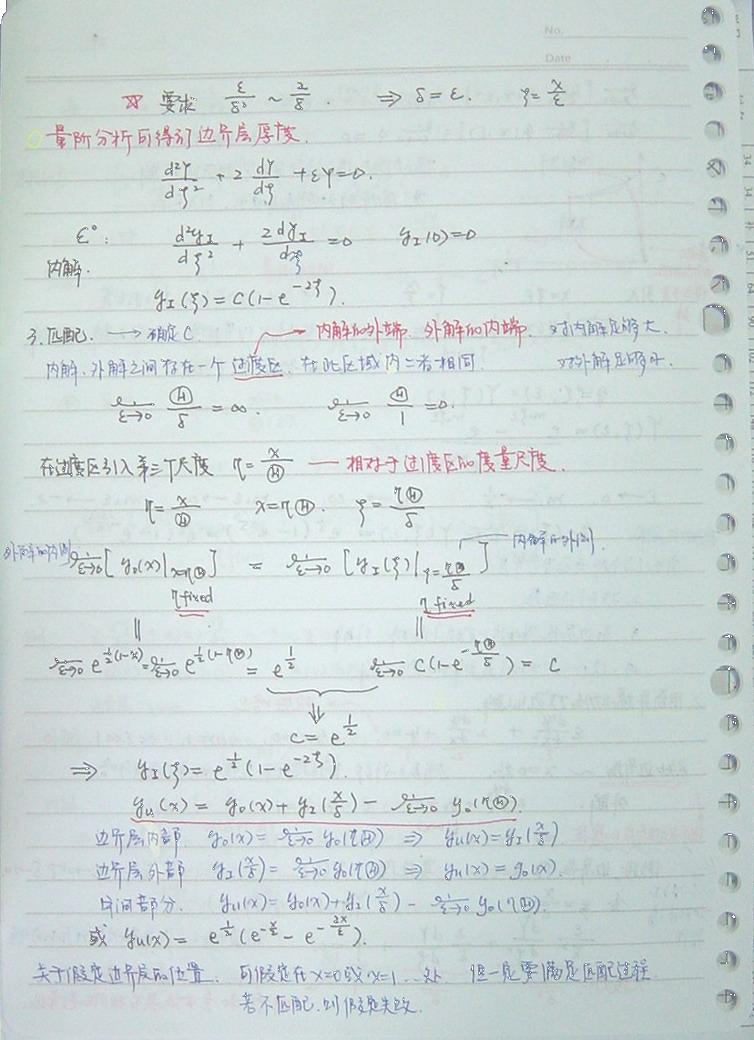 No.
Date
☆ 要求 ε/δ² ~ 2/δ. ⇒ δ=ε. ζ=x/ε
量阶分析可得到边界层厚度.
d²Y/dζ² + 2 dY/dζ + εY=0.
ε⁰: d²y_I/dζ² + 2dy_I/dζ =0 y_I(0)=0
内解.
y_I(ζ)=C(1-e^{-2ζ}).
3. 匹配. → 确定C → 内解的外端. 外解的内端. 对内解足够大.
内解、外解之间存在一个过度区. 在此区域内二者相同. 对外解足够小.
lim_{ε→0} Ⓗ/δ =∞. lim_{ε→0} Ⓗ/1 =0.
在过度区引入第三个尺度 η=x/Ⓗ —— 相对于过度区的度量尺度.
η=x/Ⓗ x=ηⒽ. ζ=ηⒽ/δ
外解的内侧 lim_{ε→0}[y_0(x)|_{x=ηⒽ}] = lim_{ε→0}[y_I(ζ)|_{ζ=ηⒽ/δ}] 内解的外侧.
η fixed η fixed
lim_{ε→0} e^{½(1-x)}=lim_{ε→0} e^{½(1-ηⒽ)}=e^{½} lim_{ε→0} C(1-e^{-ηⒽ/δ})=C
⇓
C=e^{½}
⇒ y_I(ζ)=e^{½}(1-e^{-2ζ}).
y_u(x)=y_0(x)+y_I(x/δ)- lim_{ε→0} y_0(ηⒽ).
边界层内部 y_0(x)=lim_{ε→0} y_0(ηⒽ) ⇒ y_u(x)=y_I(x/δ)
边界层外部 y_I(x/δ)=lim_{ε→0} y_0(ηⒽ) ⇒ y_u(x)=y_0(x).
中间部分. y_u(x)=y_0(x)+y_I(x/δ)- lim_{ε→0} y_0(ηⒽ).
或 y_u(x)=e^{½}(e^{-x/2}-e^{-2x/ε}).
关于假定边界层的位置. 可假定在x=0或x=1...处 但一定要满足匹配过程
若不匹配.则假定失败.